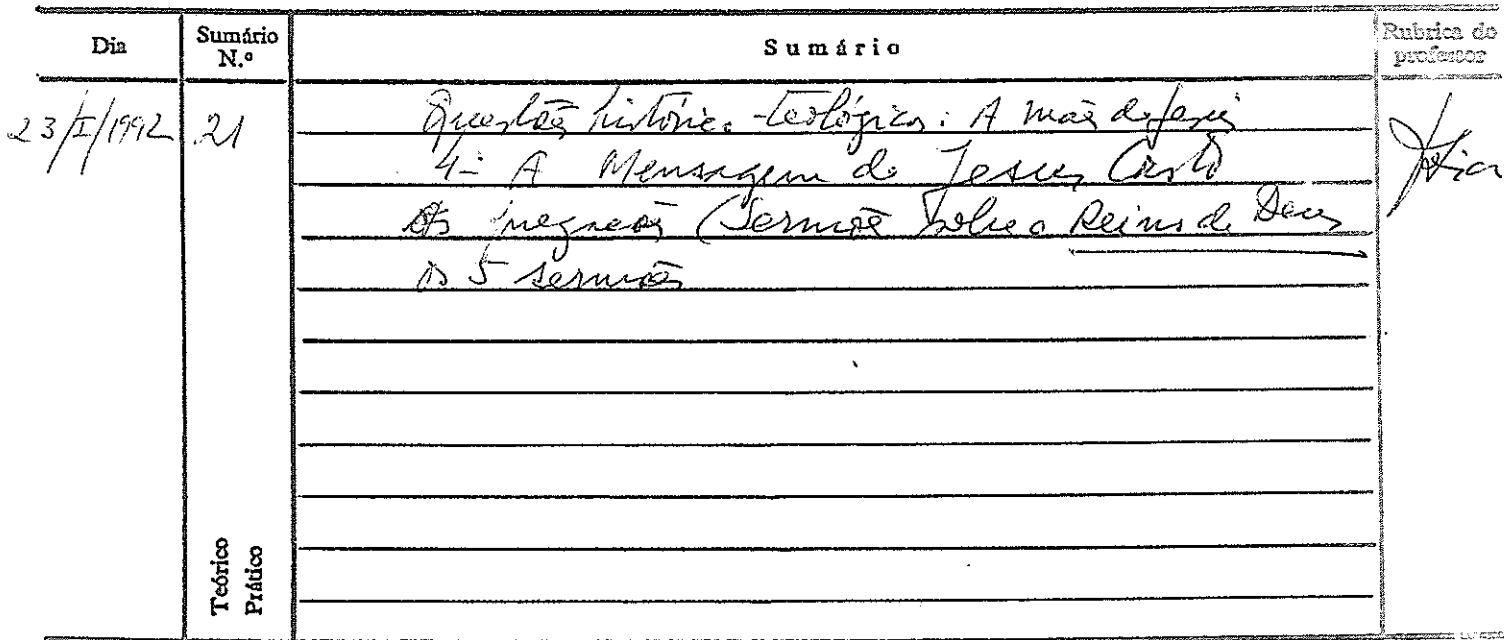 Dia
Sumário N.º
Sumário
Rubrica do professor
23/I/1992
21
Questões histórico-teológicas: A mãe de Jesus
4- A Mensagem de Jesus Cristo
As pregações (Sermões sobre o Reino de Deus
Os 5 sermões
Teórico
Prático